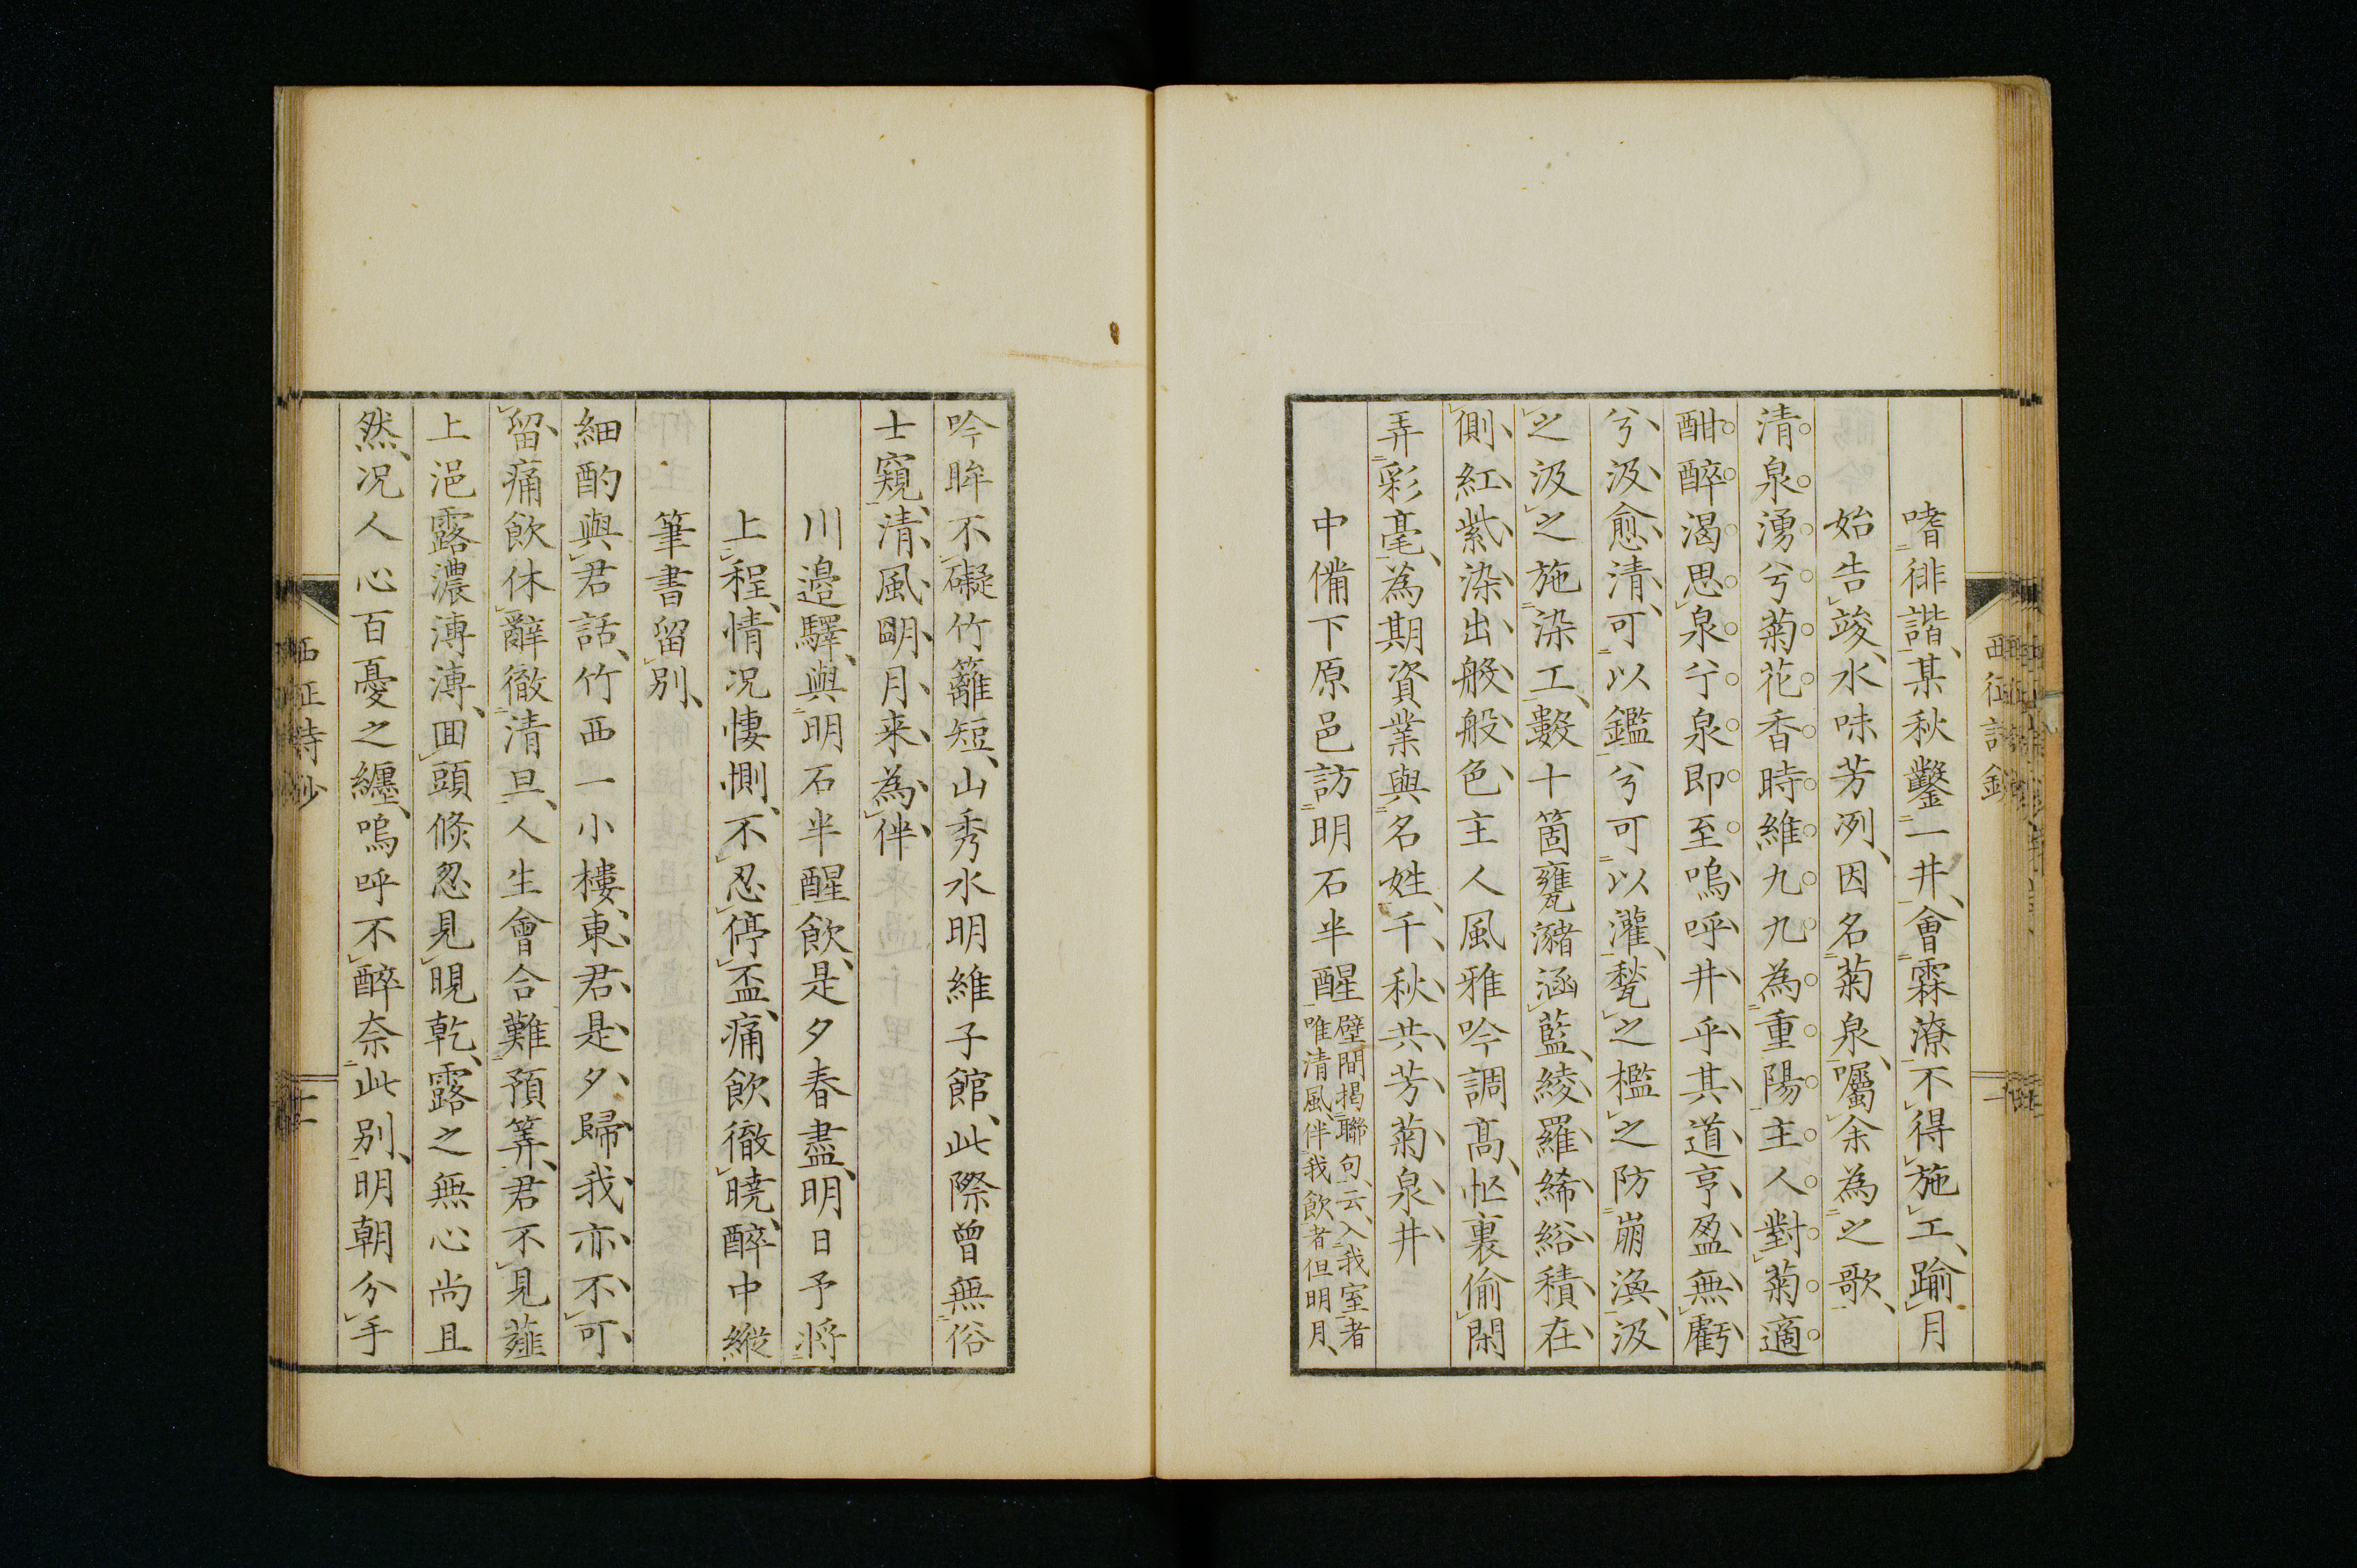 嗜徘諧某秋鑿一井會霖潦不得施工踰月
始告竣水味芳冽因名菊泉囑余為之歌
清泉湧兮菊花香時維九九為重陽主人對菊適
酣醉渴思泉兮泉即至嗚呼井乎其道亨盈無虧
兮汲愈清可以鑑兮可以灌甃之檻之防崩渙汲
之汲之施染工數十箇甕瀦涵藍綾羅絺綌積在
側紅紫染出般般色主人風雅吟調高帋裏偷閑
弄彩毫為期資業與名姓千秋共芳菊泉井
中備下原邑訪明石半醒
壁間掲聯句云入我室者
唯清風伴我飲者但明月
吟眸不礙竹籬短山秀水明維子館此際曾無俗
士窺清風明月来為伴
川邉驛與明石半醒飲是夕春盡明日予將
上程情况悽惻不忍停盃痛飲徹曉醉中縱
筆書留別
細酌與君話竹西一小樓東君是夕歸我亦不可
留痛飲休辭徹清旦人生會合難預筭君不見薤
上浥露濃漙漙囬頭倏忽見晛乾露之無心尚且
然况人心百憂之纏嗚呼不醉奈此别明朝分手
西征詩鈔